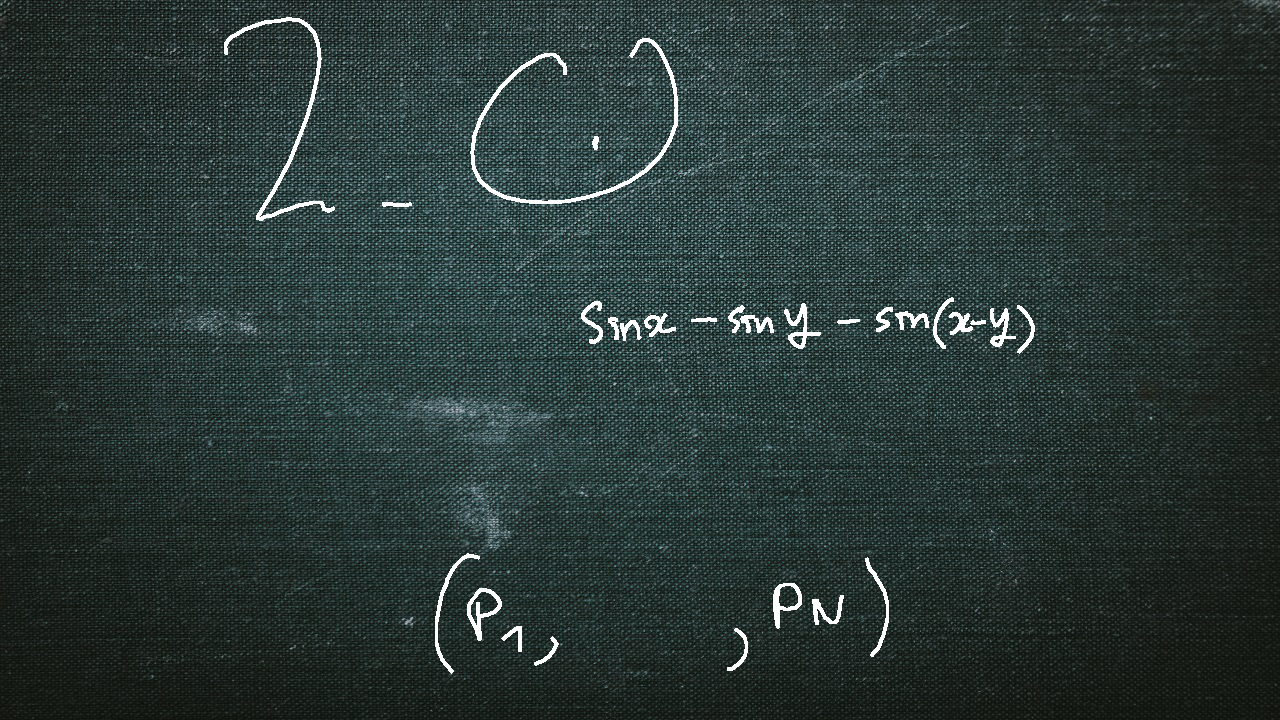 2 - ن
sin x - sin y - sin(x-y)
(P1, , PN)